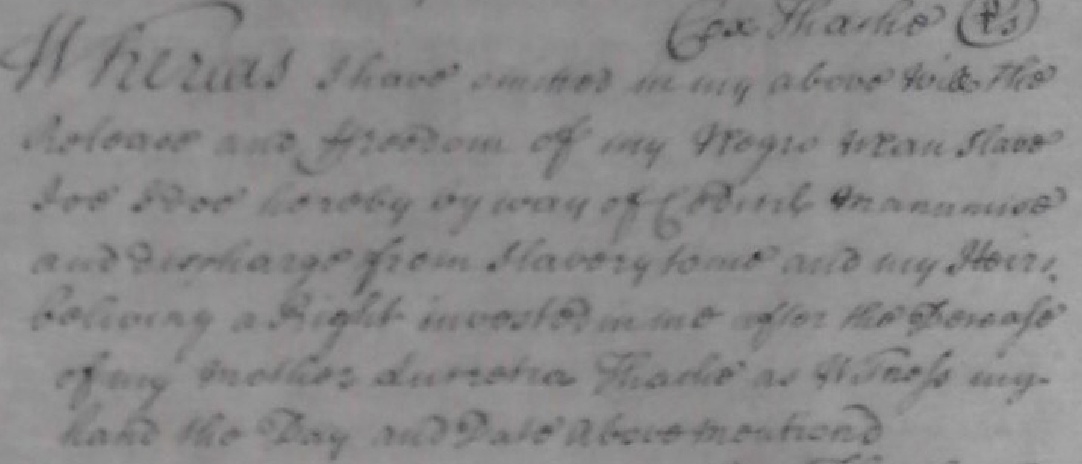 Cox Thache (Ls)
Whereas I have omitted in my above Will the
Release and Freedom of my Negro Man Slave
Joe I Doe hereby by way of Codicil Manumise
and discharge from Slavery to me and my Heirs,
beliving a Right invested in me after the Decease
of my Mother Lucretia Thache as Witness my
hand the Day and Date Above mentiond